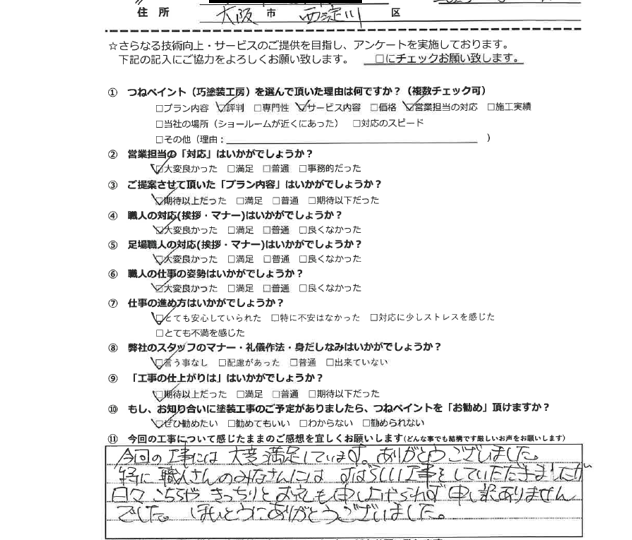 住 所 大阪 市 西淀川 区
☆さらなる技術向上・サービスのご提供を目指し、アンケートを実施しております。
下記の記入にご協力をよろしくお願い致します。 □にチェックお願い致します。
① つねペイント（巧塗装工房）を選んで頂いた理由は何ですか？（複数チェック可）
□プラン内容 ☑評判 □専門性 ☑サービス内容 □価格 ☑営業担当の対応 □施工実績
□当社の場所（ショールームが近くにあった） □対応のスピード
□その他（理由： ）
② 営業担当の「対応」はいかがでしょうか？
☑大変良かった □満足 □普通 □事務的だった
③ ご提案させて頂いた「プラン内容」はいかがでしょうか？
☑期待以上だった □満足 □普通 □期待以下だった
④ 職人の対応(挨拶・マナー)はいかがでしょうか？
☑大変良かった □満足 □普通 □良くなかった
⑤ 足場職人の対応(挨拶・マナー)はいかがでしょうか？
☑大変良かった □満足 □普通 □良くなかった
⑥ 職人の仕事の姿勢はいかがでしょうか？
☑大変良かった □満足 □普通 □良くなかった
⑦ 仕事の進め方はいかがでしょうか？
☑とても安心していられた □特に不安はなかった □対応に少しストレスを感じた
□とても不満を感じた
⑧ 弊社のスタッフのマナー・礼儀作法・身だしなみはいかがでしょうか？
☑言う事なし □配慮があった □普通 □出来ていない
⑨ 「工事の仕上がりは」はいかがでしょうか？
☑期待以上だった □満足 □普通 □期待以下だった
⑩ もし、お知り合いに塗装工事のご予定がありましたら、つねペイントを「お勧め」頂けますか？
☑ぜひ勧めたい □勧めてもいい □わからない □勧められない
⑪ 今回の工事について感じたままのご感想を宜しくお願いします(どんな事でも結構です厳しいお声をお願いします)
今回の工事には大変満足しています。ありがとうございました。
特に職人さんのみなさんには すばらしい工事をしていただきましたが
日々 こちらや きっちりと お礼も申し上げられず 申し訳ありません
でした。 ほんとうにありがとうございました。